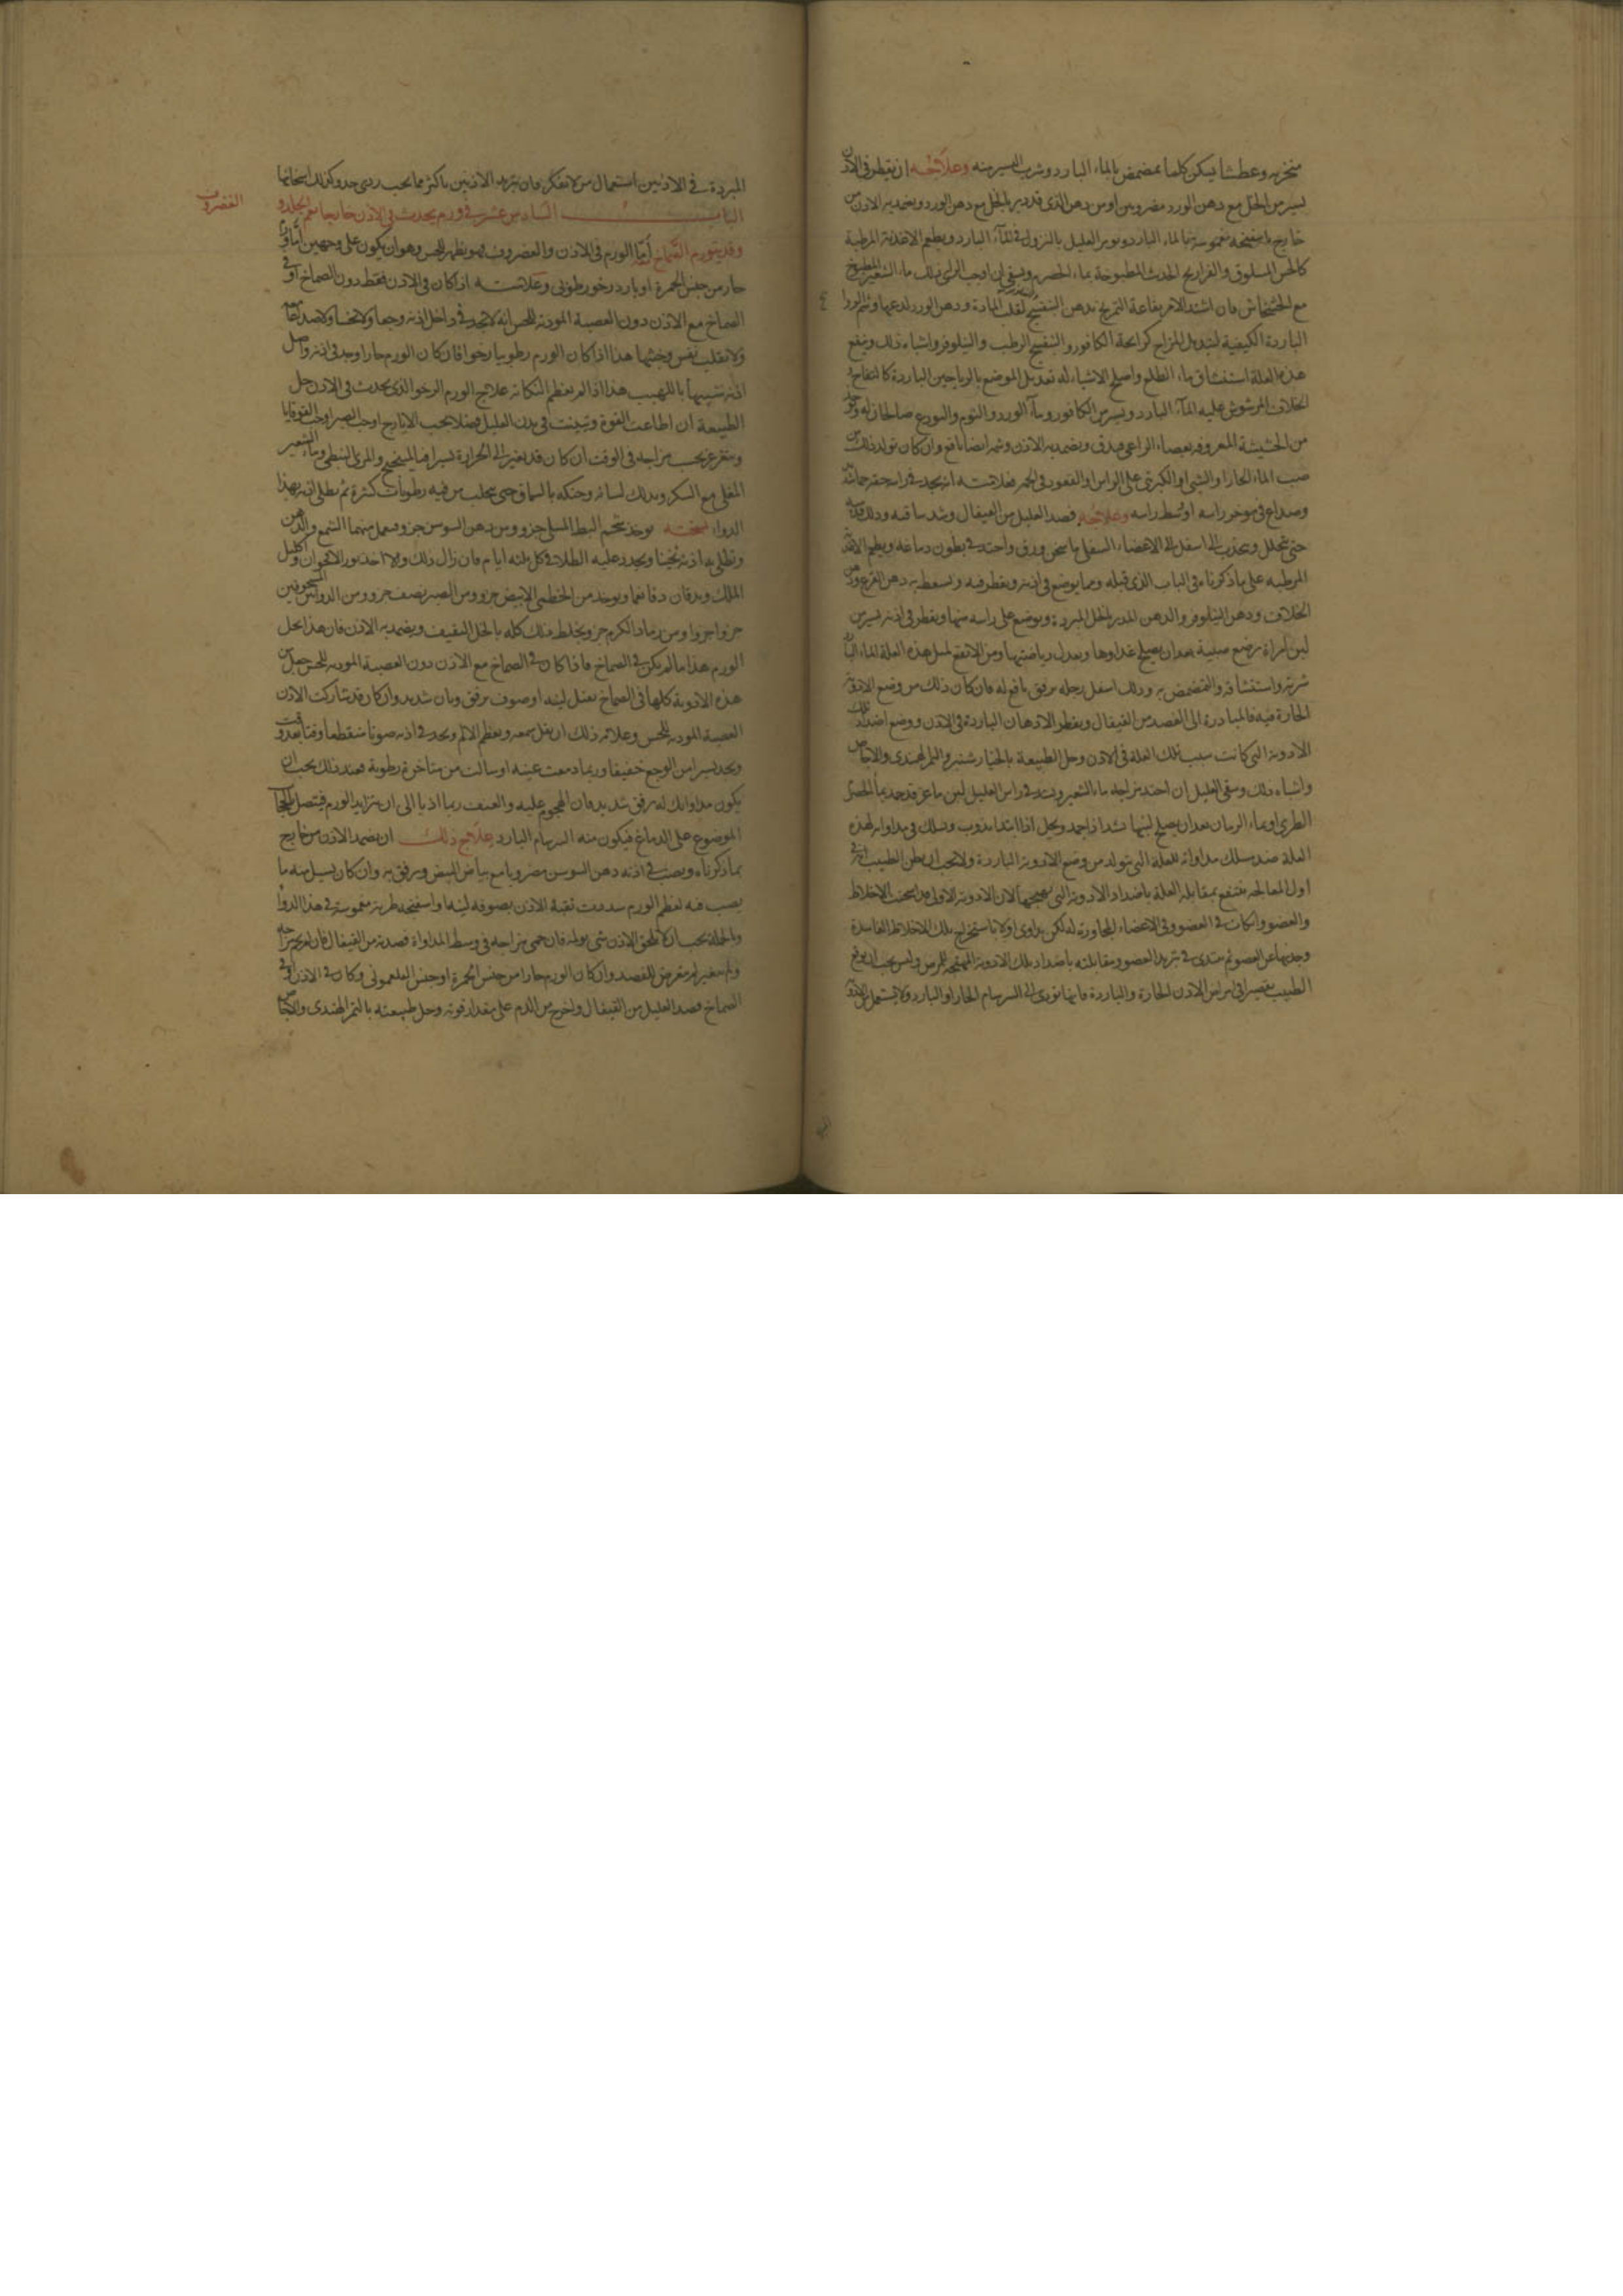 منخريه وعطشا يسكن كلما تمضمض بالماء البارد وشرب اليسير منه وعلاجه ان يقطر في الاذن
يسير من الخل مع دهن الورد مضروبين او من دهن الذي قد دبر بالخل مع دهن الورد ويضمد به الاذن من
خارج باسفنجة مغموسة بالماء البارد ويومر العليل بالنزول في الماء البارد ويطعم الاغذية المرطبة
كالخس المسلوق والفراريج المطبوخة بماء الحصرم ويسقى ان اوجب الراى ذلك ماء الشعير المطبوخ
مع الخشخاش فان اشتد الامر بقاعة التمريخ بدهن البنفسج لقلب المادة ودهن الورد لدعها وشم الورد
الباردة الكيفية لتبديل المزاج كرائحة الكافور والبنفسج الرطب والنيلوفر واشباه ذلك وينفع
هذه العلة استنشاق ماء الطلع واصلح الاشياء له تعديل الموضع بالرياحين الباردة كالتفاح و
الخلاف المرشوش عليه الماء البارد ويسير من الكافور وماء الورد والنوم والتودع صالحان له
من الحشيشة المعروفة بعصاء الراعي يدق ويضمد به الاذن وشمه ايضا نافع وان كان تولد ذلك من
صب الماء الحار او الشبي او الكبريتي على الراس او القعود في الحمر فعلامته انه يجد في راسه
وصداع في موخر راسه او وسط راسه وعلاجه فصد العليل من القيفال وشد ساقيه ودلك قدميه
حتى يتحلل وينجذب الى اسفل الى الاعضاء السفلى ما سخن ورق واحتد في بطون دماغه ويطعم الاغذية
المرطبة على ما ذكرناه في الباب الذي قبله ومما يوضع في اذنه ويقطر فيه ويسعط به دهن القرع ودهن
الخلاف ودهن النيلوفر والدهن المدبر بالخل المبردة ويوضع على راسه منها ويقطر في اذنه يسير من
لبن امراة ترضع صبية بعد ان يصلح غذاوها ويعدل رياضتها ومن الانفع لمثل هذه العلة الماء البارد
شربه واستنشاقه والتمضمض به ودلك اسفل رجله برفق نافع له فان كان ذلك من وضع الادوية
الحارة فيه فالمبادرة الى الفصد من القيفال ويقطر الادهان الباردة في الاذن ووضع اضداد تلك
الادوية التي كانت سبب تلك العلة في الاذن وحل الطبيعة بالخيار شنبر والتمر الهندي والاجاص
واشباه ذلك وسقي العليل ان احتد مزاجه ماء الشعير ويشد في راس العليل لبن ماعز قد جمد بماء الحصرم
الطري او بماء الرمان بعد ان يصلح لبنها شد اذا جمد ويحل اذا ابتدا يذوب ويسلك في مداواة هذه
العلة ضد مسلك مداواة العلة التي تتولد من وضع الادوية الباردة ولا يجب ان يظن الطبيب انه في
اول المعالجة ينتفع بمقابلة العلة باضداد الادوية التي هيجتها لان الادوية الاولى قد اسخنت الاخلاط
والعضو وانكات في العضو وفي الاعضاء المجاورة له لكن يداوى اولا باستخراج تلك الاخلاط الفاسدة
وجذبها عن العضو ثم يبتدى في تبريد العضو ومقابلته باضداد تلك الادوية المهيجة للمرض وليس يجب ان يوقع
الطبيب تقصيرا في مرض الاذن الحارة والباردة فانها تودي الى السرسام الحار او البارد ولا يستعمل من الادوية
المبردة في الاذنين استعمال من لا يفكر فان تبريد الاذنين باكثر مما يجب ردى جدا وكذلك اسخانها
الباب السادس عشر في ورم يحدث في الاذن خارجا يعم الجلد و
الغضروف
وقد يتورم الصماخ اما الورم في الاذن والغضروف فهو يظهر للحس وهو ان يكون على وجهين اما ورم
حار من جنس الحمرة او بارد رخو رطوبي وعلامته اذا كان في الاذن فقط دون الصماخ او في
الصماخ مع الاذن دون العصبة المودية للحس انه لا يجد في داخل اذنه وجعا ولا نخسا ولا صداعا
ولا تقلب نفس وخبثها هذا اذا كان الورم رطوبيا رخوا فان كان الورم حارا وجد في اذنه واصل
اذنه شبيها باللهيب هذا اذا لم يعظم النكاية علاج الورم الرخو الذي يحدث في الاذن حل
الطبيعة ان اطاعت القوة وتبينت في بدن العليل فضلا بحب الايارج او حب الصبر او حب القوقايا
ويتغرغر بحسب مزاجه في الوقت ان كان قد تغير الى الحرارة يسيرا فبالميبختج والمري النبطي وماء الشعير
المغلى مع السكر ويدلك لسانه وحنكه بالسماق حتى يتحلب من فيه رطوبات كثيرة ثم يطلى اذنه بهذا
الدواء نسخته يوخذ شحم البط المسلى جزو ومن دهن السوسن جزو فيعمل منهما الشمع والدهن
ويطلى به اذنه ثخينا ويجدد عليه الطلاء في كل ثلثة ايام فان زال ذلك والا اخذ نور الاقحوان واكليل
الملك ويدقان دقا ناعما ويوخذ من الخطمي الابيض جزو ومن الصبر نصف جزو ومن الدوائين المسحوقين
جزوا جزوا ومن رماد الكرم جزو ويخلط ذلك كله بالخل الثقيف ويضمد به الاذن فان هذا يحل
الورم هذا ما لم يكن في الصماخ فاذا كان في الصماخ مع الاذن دون العصبة المودية للحس جعل من
هذه الادوية كلها في الصماخ بفتل لينة او صوف برفق وبان شديد وان كان قد شاركت الاذن
العصبة المودية للحس وعلامة ذلك ان يثقل سمعه ويعظم الالم ويجد في اذنه صوتا متقطعا وقتا بعد وقت
ويجد يسيرا من الوجع خفيفا وربما دمعت عينه او سالت من مناخره رطوبة فعند ذلك يجب ان
يكون مداواتك له برفق شديد فان الهجوم عليه والعنف ربما اديا الى ان يتزايد الورم فيتصل بالحجاب
الموضوع على الدماغ فيكون منه السرسام البارد علاج ذلك ان يضمد الاذن من خارج
بما ذكرناه ويصب في اذنه دهن السوسن مضروبا مع بياض البيض ويرفق به وان كان يسيل منه ما
يصب فيه لعظم الورم سددت ثقبة الاذن بصوفة لينة او اسفنجة طرية مغموسة في هذا الدواء
وبالجملة يجب ان لا يلحق الاذن شي يولمه فان حمي مزاجه في وسط المداواة فصدته من القيفال فان لم يحم مزاجه
ولم يتغير لم تتعرض للفصد وان كان الورم حارا من جنس الحمرة او جنس الفلغموني وكان في الاذن او في
الصماخ فصد العليل من القيفال واخرج من الدم على مقدار قوته وحل طبيعته بالتمر الهندي والاجاص